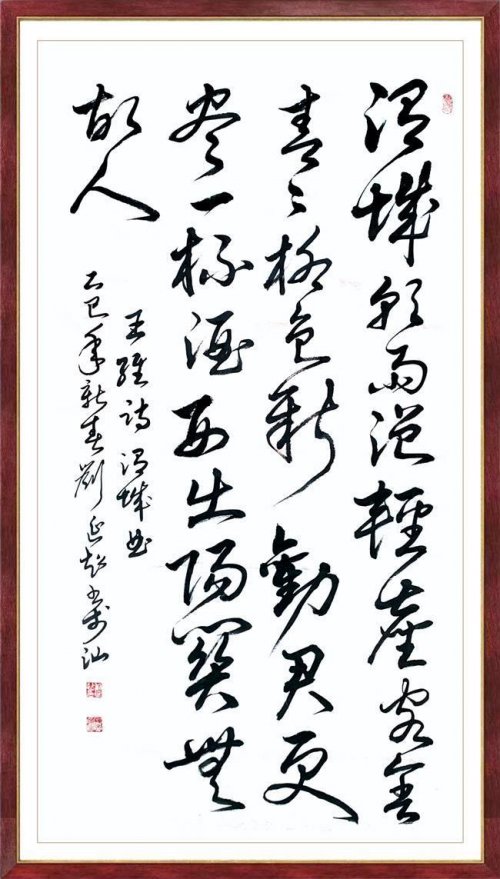 渭城朝雨浥輕塵客舍
青々柳色新勸君更
尽一杯酒西出陽關無
故人
王維詩渭城曲
乙巳年新春劉延超书於汕